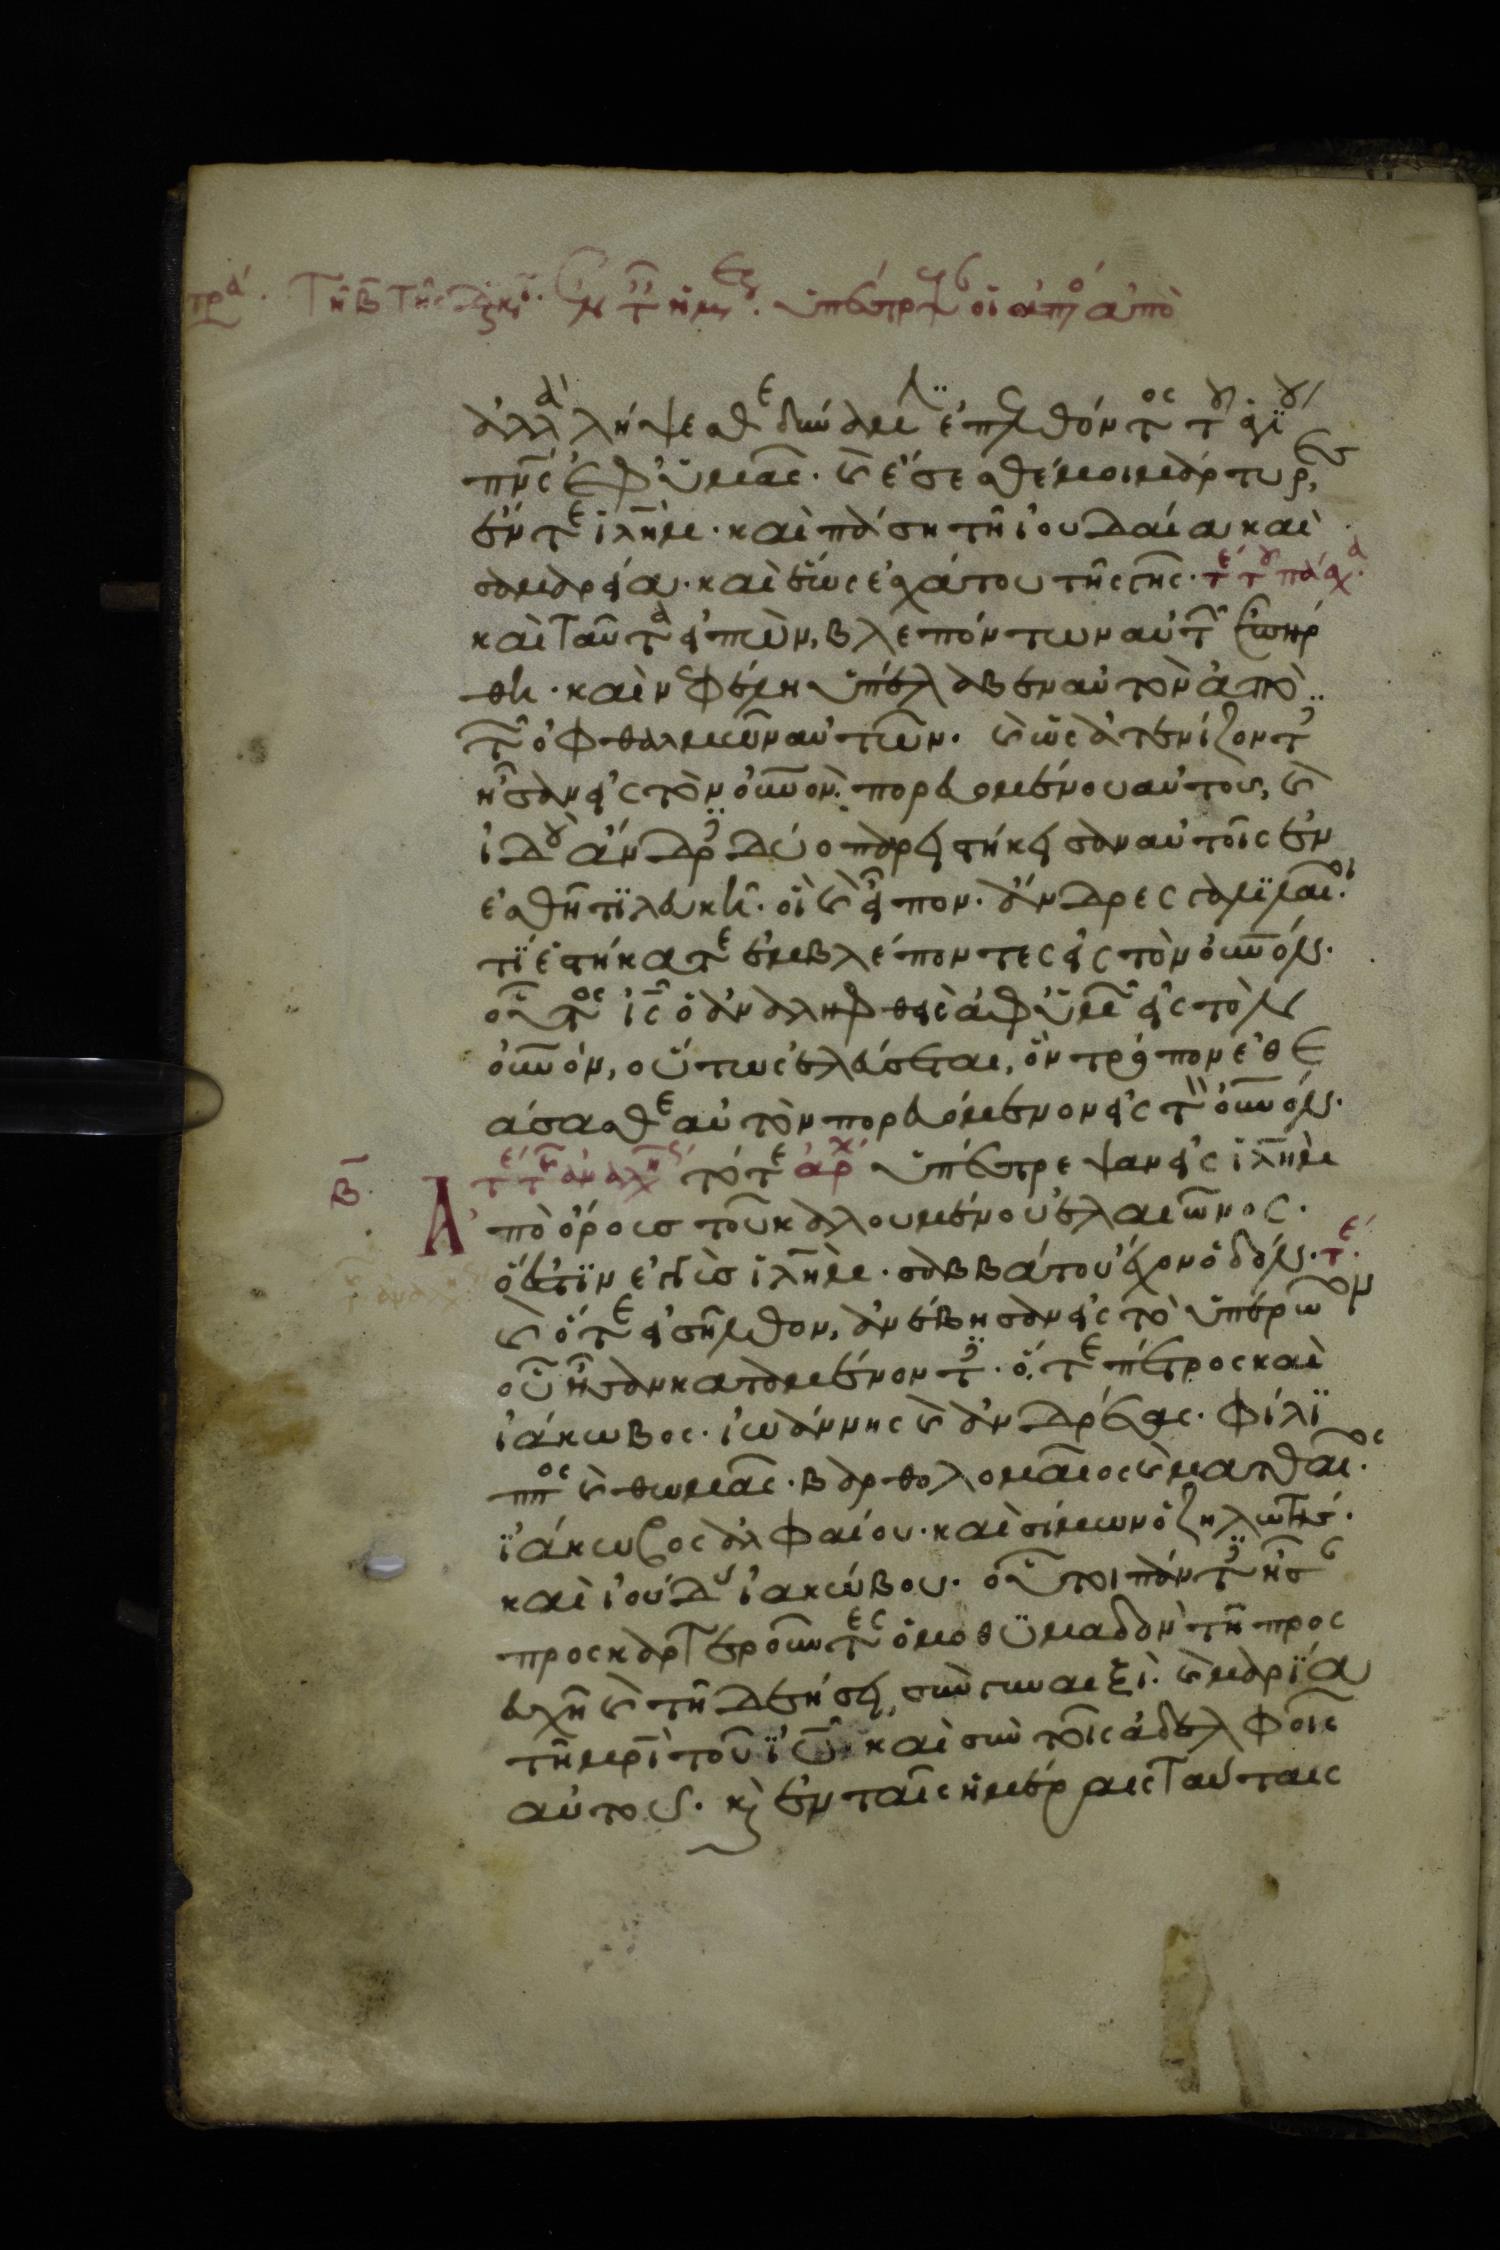 πρα. Τῆ β τῆς διακι. Ἐν τ ἡμ. ὑπέστρεψ οἱ ἀπο ἀπὸ
ἀλλὰ λήψεσθε δύναμι ἐπελθόντος τοῦ ἁγίου
πνς ἐφ ὑμᾶς. καὶ ἔσεσθέ μοι μάρτυρες
ἔν τε ἱλημ. καὶ πάση τῆ ἰουδαία καὶ
σαμαρεία. καὶ ἕως ἐσχάτου τῆς γῆς. τε τοῦ πάσχα
καὶ ταῦτα εἰπὼν, βλεπόντων αὐτῶν ἐπήρ
θη. καὶ νεφέλη ὑπέλαβεν αὐτὸν ἀπὸ
τῶν ὀφθαλμῶν αὐτῶν. καὶ ὡς ἀτενίζοντες
ἦσαν εἰς τὸν οὐνον. πορευομένου αὐτοῦ, καὶ
ἰδοὺ ἄνδρες δύο παρειστήκεισαν αὐτοῖς ἐν
ἐσθῆτι λευκῆ. οἳ καὶ εἶπον. ἄνδρες γαλιλαῖοι.
τί ἑστήκατε ἐμβλέποντες εἰς τὸν οὐνόν.
οὗτος ις ὁ ἀναληφθεὶς ἀφ ὑμῶν εἰς τὸν
οὐνόν, οὕτως ἐλεύσεται, ὃν τρόπον ἐθε
άσασθε αὐτὸν πορευόμενον εἰς τὸν οὐνόν.
β. τε τ ἀναλη τότε ἀρχ ὑπέστρεψαν εἰς ἱλημ
Ἀπὸ ὄρους τοῦ καλουμένου ἐλαιῶνος.
ὅ ἐστιν ἐγγὺς ἱλημ. σαββάτου ἔχον ὁδόν. τε.
καὶ ὅτε εἰσῆλθον, ἀνέβησαν εἰς τὸ ὑπερῶον
οὗ ἦσαν καταμένοντες. ὅ τε πέτρος καὶ
ἰάκωβος. ἰωάννης καὶ ἀνδρέας. φίλι
ππος καὶ θωμᾶς. βαρθολομαῖος καὶ ματθαῖος.
ἰάκωβος ἀλφαίου. καὶ σίμων ὁ ζηλωτής.
καὶ ἰούδας ἰακώβου. οὗτοι πάντες ἦσαν
προσκαρτεροῦντες ὁμοθυμαδὸν τῆ προς
ευχῆ καὶ τῆ δεήσει, σὺν γυναιξὶ. καὶ μαρία
τῆ μρι τοῦ ιυ καὶ σὺν τοῖς ἀδελφοῖς
αὐτοῦ. καὶ ἐν ταῖς ἡμέραις ταύταις